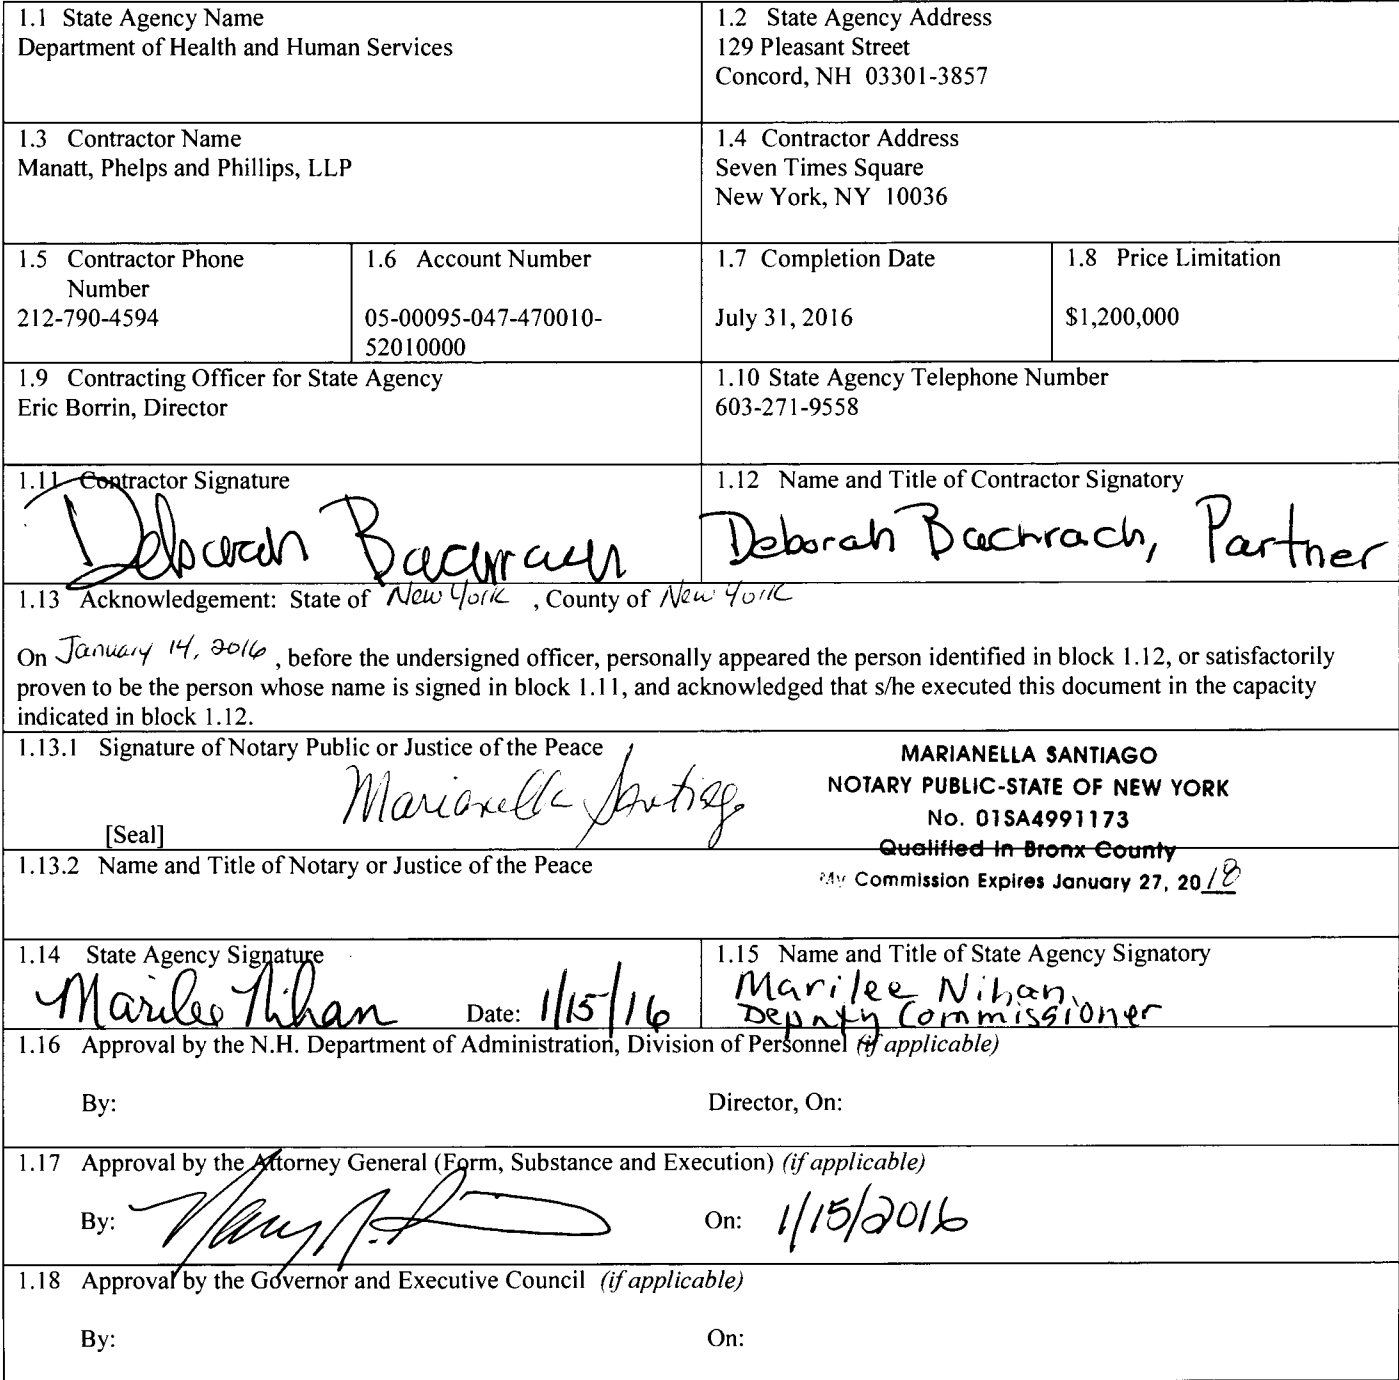 1.1 State Agency Name
Department of Health and Human Services
1.2 State Agency Address
129 Pleasant Street
Concord, NH 03301-3857
1.3 Contractor Name
Manatt, Phelps and Phillips, LLP
1.4 Contractor Address
Seven Times Square
New York, NY 10036
1.5 Contractor Phone
Number
212-790-4594
1.6 Account Number
05-00095-047-470010-
52010000
1.7 Completion Date
July 31, 2016
1.8 Price Limitation
$1,200,000
1.9 Contracting Officer for State Agency
Eric Borrin, Director
1.10 State Agency Telephone Number
603-271-9558
1.11 Contractor Signature
Deborah Bachrach
1.12 Name and Title of Contractor Signatory
Deborah Bachrach, Partner
1.13 Acknowledgement: State of New York , County of New York
On January 14, 2016 , before the undersigned officer, personally appeared the person identified in block 1.12, or satisfactorily
proven to be the person whose name is signed in block 1.11, and acknowledged that s/he executed this document in the capacity
indicated in block 1.12.
1.13.1 Signature of Notary Public or Justice of the Peace
Marianella Santiago
[Seal]
MARIANELLA SANTIAGO
NOTARY PUBLIC-STATE OF NEW YORK
No. 01SA4991173
Qualified in Bronx County
My Commission Expires January 27, 2018
1.13.2 Name and Title of Notary or Justice of the Peace
1.14 State Agency Signature
Marilee Nihan Date: 1/15/16
1.15 Name and Title of State Agency Signatory
Marilee Nihan,
Deputy Commissioner
1.16 Approval by the N.H. Department of Administration, Division of Personnel (if applicable)
By: Director, On:
1.17 Approval by the Attorney General (Form, Substance and Execution) (if applicable)
By: On: 1/15/2016
1.18 Approval by the Governor and Executive Council (if applicable)
By: On: